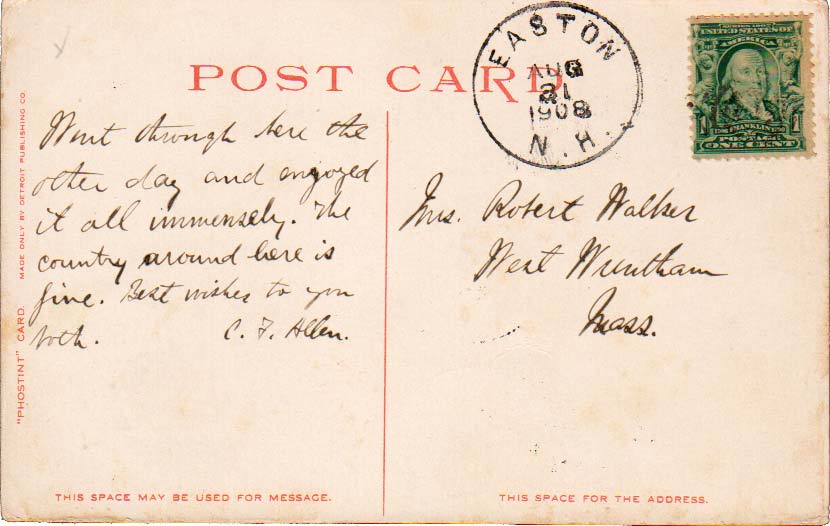 POST CARD
EASTON
AUG
31
1908
N.H.
SERIES 1902
UNITED STATES OF
AMERICA
FRANKLIN
1 POSTAGE 1
ONE CENT
Went through here the
other day and engoyed
it all immensely. The
country around here is
fine. Best wishes to you
both.
C. F. Allen.
Mrs. Robert Walker
West Wrentham
Mass.
"PHOSTINT" CARD. MADE ONLY BY DETROIT PUBLISHING CO.
THIS SPACE MAY BE USED FOR MESSAGE.
THIS SPACE FOR THE ADDRESS.